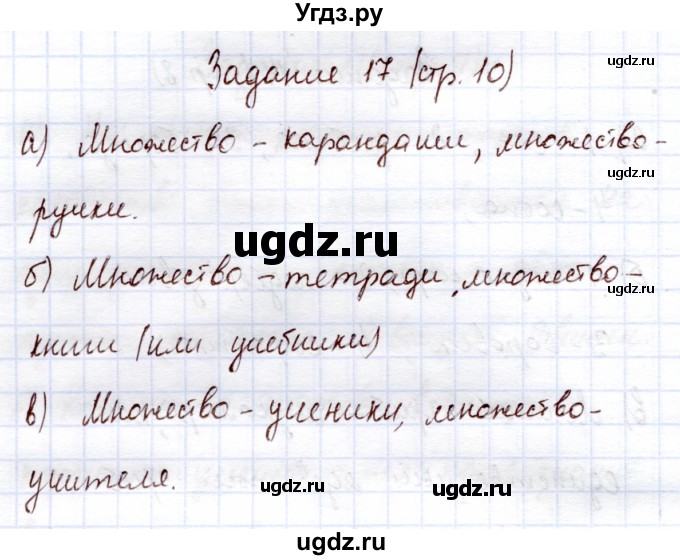 Угдз.ру
Задание 17 (стр. 10)
ugdz.ru
а) Множество - карандаши, множество -
ugdz.ru
ручки.
ugdz.ru
б) Множество - тетради, множество -
ugdz.ru
книги (или учебники)
в) Множество - ученики, множество -
учителя.
ugdz.ru
ugdz.ru
ugdz.ru